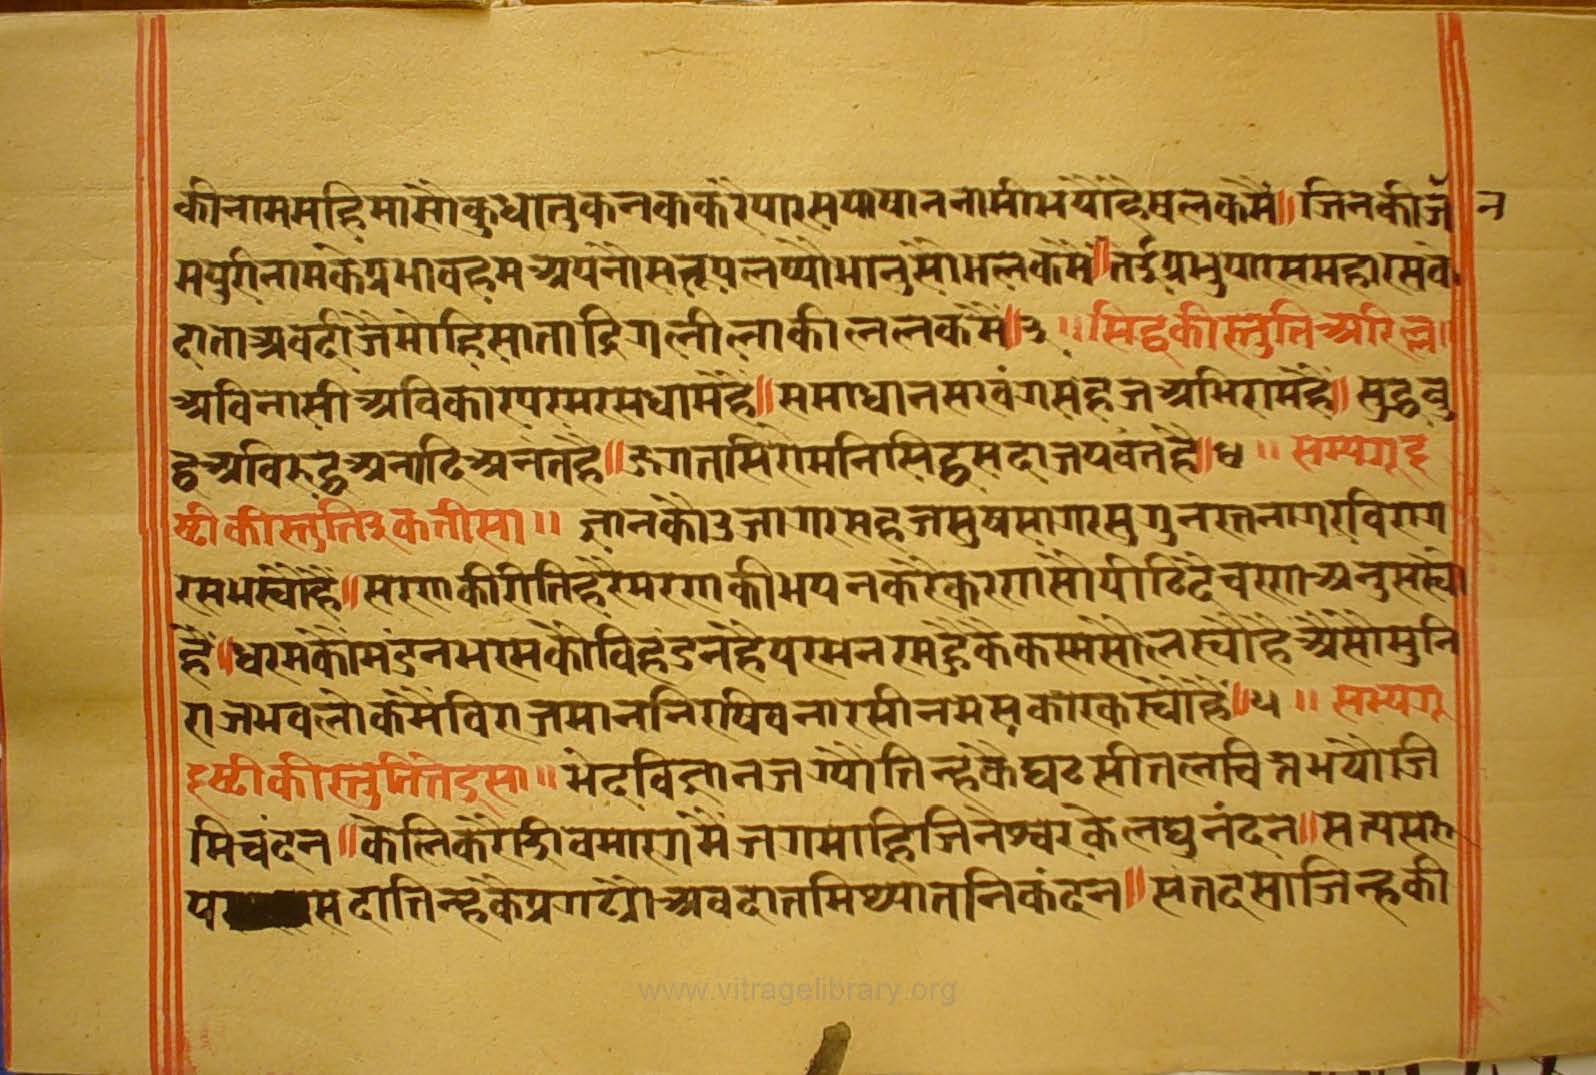 कीनाममहिमासौंकुधातुकनककरैपारसपाषाननामीभयौहैषलकमैं॥ जिनकीजन
मपुरीनामकेप्रभावहमअपनौसरूपलष्यौभानुसोभलकमैं॥तेईप्रभुपारसमहारसके
दाताअबदीजैमोहिसातादिगलीलाकीललकमैं॥३॥ सिद्धकीस्तुतिअरिल्ल॥
अविनासीअविकारपरमरसधामहैं॥समाधानसरवंगसहजअभिरामहैं॥ सुद्धबु
द्धअविरुद्धअनादिअनंतहै॥जगतसिरोमनिसिद्धसदाजयवंतहै॥४॥ सम्यगद्द
ष्टीकीस्तुतिइकतीसा॥ ज्ञानकौउजागरसहजसुषसागरसुगुनरतनागरविराग
रसभस्यौहैं॥सरणकीरीतिहरैमरणकौभयनकरैकरणसौंपीठिदेचरणअनुसस्यो
हैं॥धरमकौमंडनभरमकौविहंडनहैपरमनरमह्वैकैकरमसोलस्यौहैअैसौमुनि
राजभवलोकमैंविराजमाननिरषिवनारसीनमसकारकस्यौहैं॥५॥ सम्यग
दृष्टीकीस्तुतितेईसा॥ भेदविज्ञानजग्यौतिन्हकैघटसीतलचित्तभयौजि
मिचंदन॥केलिकरैंशिवमारगमैंजगमांहिजिनेश्वरकेलघुनंदन॥सत्यसरू
पसदातिन्हकैप्रगट्यौअवदातमिथ्यातनिकंदन॥संतदसाजिन्हकी
www.vitragelibrary.org